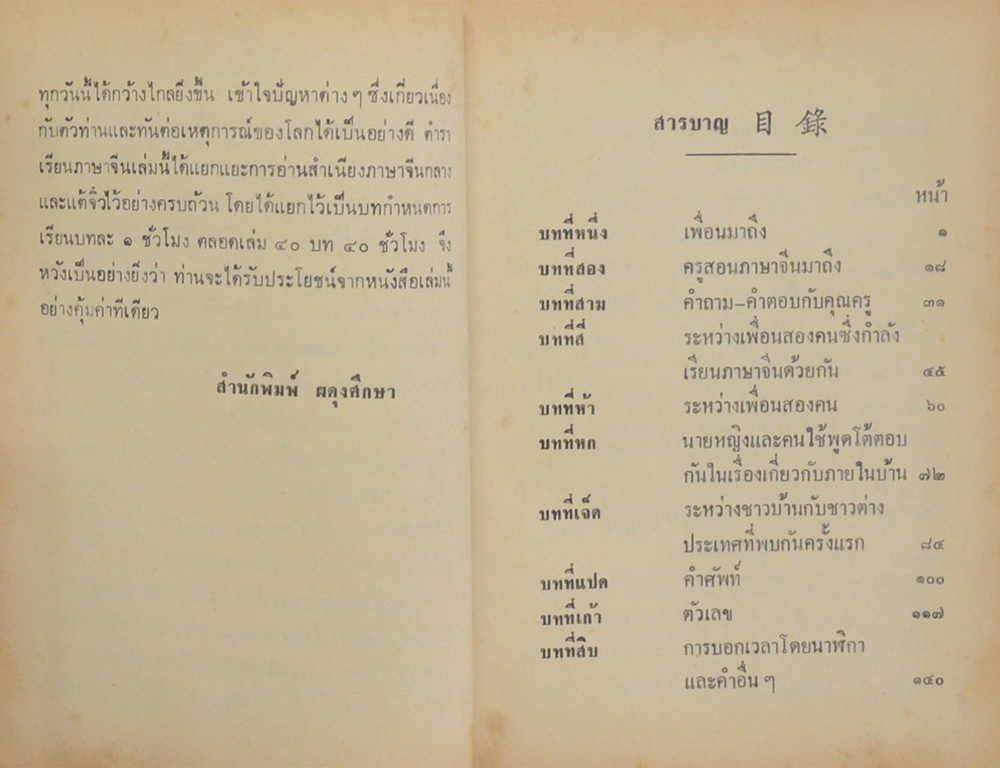 ทุกวันนี้ได้กว้างไกลยิ่งขึ้น เข้าใจปัญหาต่าง ๆ ซึ่งเกี่ยวเนื่อง
กับตัวท่านและทันต่อเหตุการณ์ของโลกได้เป็นอย่างดี ตำรา
เรียนภาษาจีนเล่มนี้ได้แยกแยะการอ่านสำเนียงภาษาจีนกลาง
และแต้จิ๋วไว้อย่างครบถ้วน โดยได้แยกไว้เป็นบทกำหนดการ
เรียนบทละ ๑ ชั่วโมง ตลอดเล่ม ๔๐ บท ๔๐ ชั่วโมง จึง
หวังเป็นอย่างยิ่งว่า ท่านจะได้รับประโยชน์จากหนังสือเล่มนี้
อย่างคุ้มค่าทีเดียว
สำนักพิมพ์ ผดุงศึกษา
สารบาญ 目錄
หน้า
บทที่หนึ่ง เพื่อนมาถึง ๑
บทที่สอง ครูสอนภาษาจีนมาถึง ๑๘
บทที่สาม คำถาม–คำตอบกับคุณครู ๓๑
บทที่สี่ ระหว่างเพื่อนสองคนซึ่งกำลัง
เรียนภาษาจีนด้วยกัน ๔๕
บทที่ห้า ระหว่างเพื่อนสองคน ๖๐
บทที่หก นายหญิงและคนใช้พูดโต้ตอบ
กันในเรื่องเกี่ยวกับภายในบ้าน ๗๒
บทที่เจ็ด ระหว่างชาวบ้านกับชาวต่าง
ประเทศที่พบกันครั้งแรก ๘๔
บทที่แปด คำศัพท์ ๑๐๐
บทที่เก้า ตัวเลข ๑๑๗
บทที่สิบ การบอกเวลาโดยนาฬิกา
และคำอื่น ๆ ๑๔๐